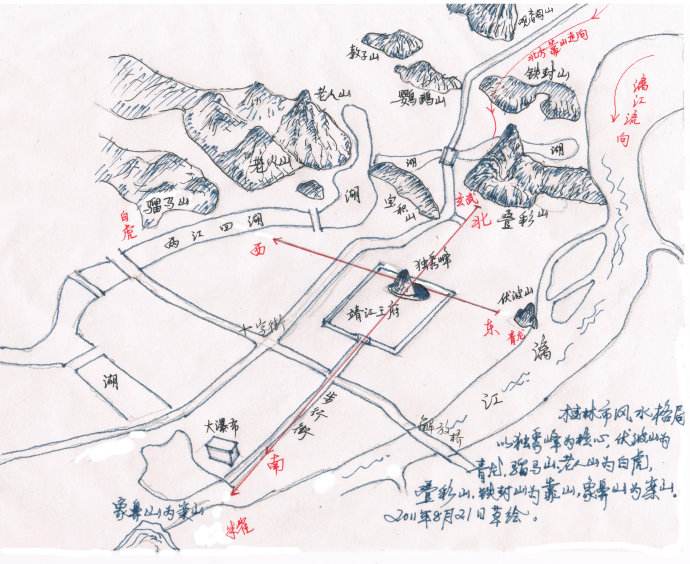 观音山
敦子山
北方靠山走向
铁封山
鹦鹉山
老人山
漓江流向
湖
老火山
湖
宝积山
骝马山
玄武
北
叠彩山
白虎
两江四湖
西
独秀峰
伏波山
靖江王府
东
青龙
十字街
漓
江
湖
步行街
解放桥
大瀑布
南
象鼻山为案山
朱雀
桂林市风水格局
以独秀峰为核心,伏波山为
青龙,骝马山,老人山为白虎,
叠彩山,铁封山为靠山,象鼻山为案山。
2011年8月21日草绘。